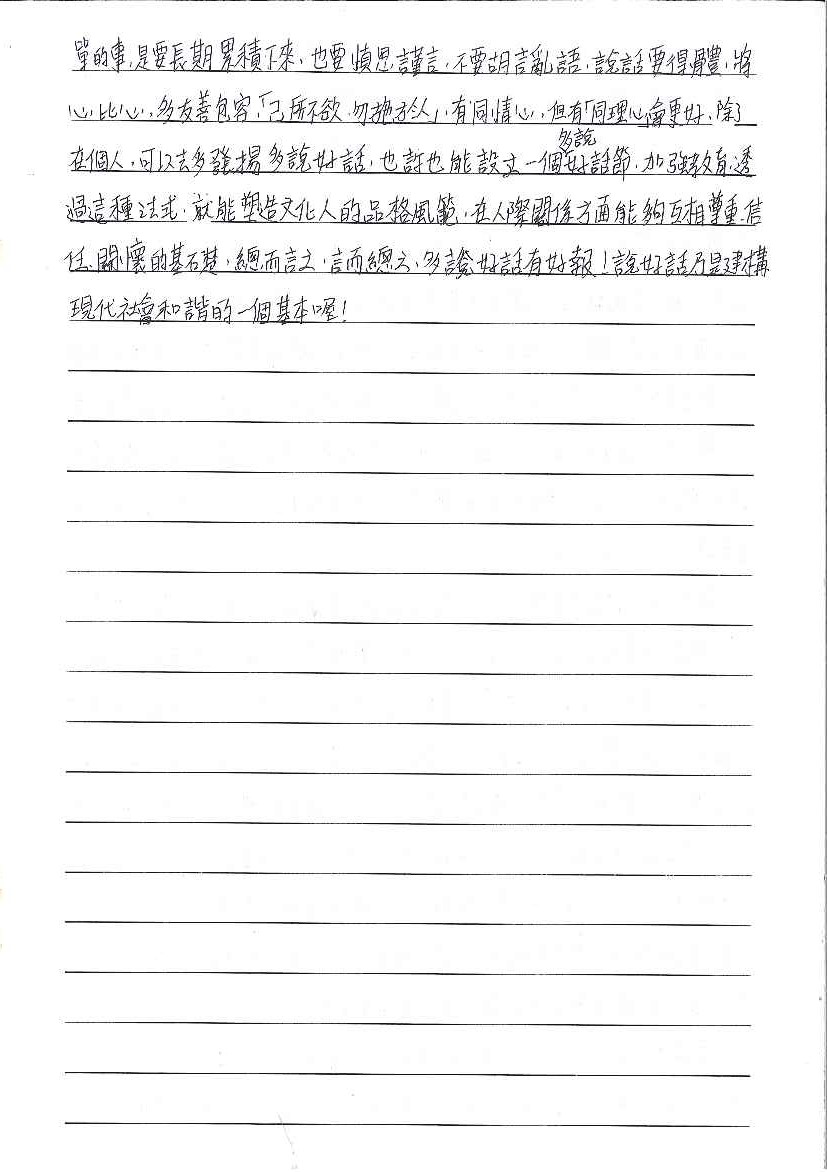 單的事,是要長期累積下來,也要慎思謹言,不要胡言亂語,說話要得體,將
心比心,多友善包容,「己所不欲,勿施於人」,有同情心,但有「同理心」會更好,除了
在個人,可以去多發揚多說好話,也許也能設立一個多說好話節,加強教育,透
過這種法式,就能塑造文化人的品格風範,在人際關係方面能夠互相尊重、信
任、關懷的基石楚,總而言之,言而總之,多說好話有好報!說好話乃是建構
現代社會和諧的一個基本喔!